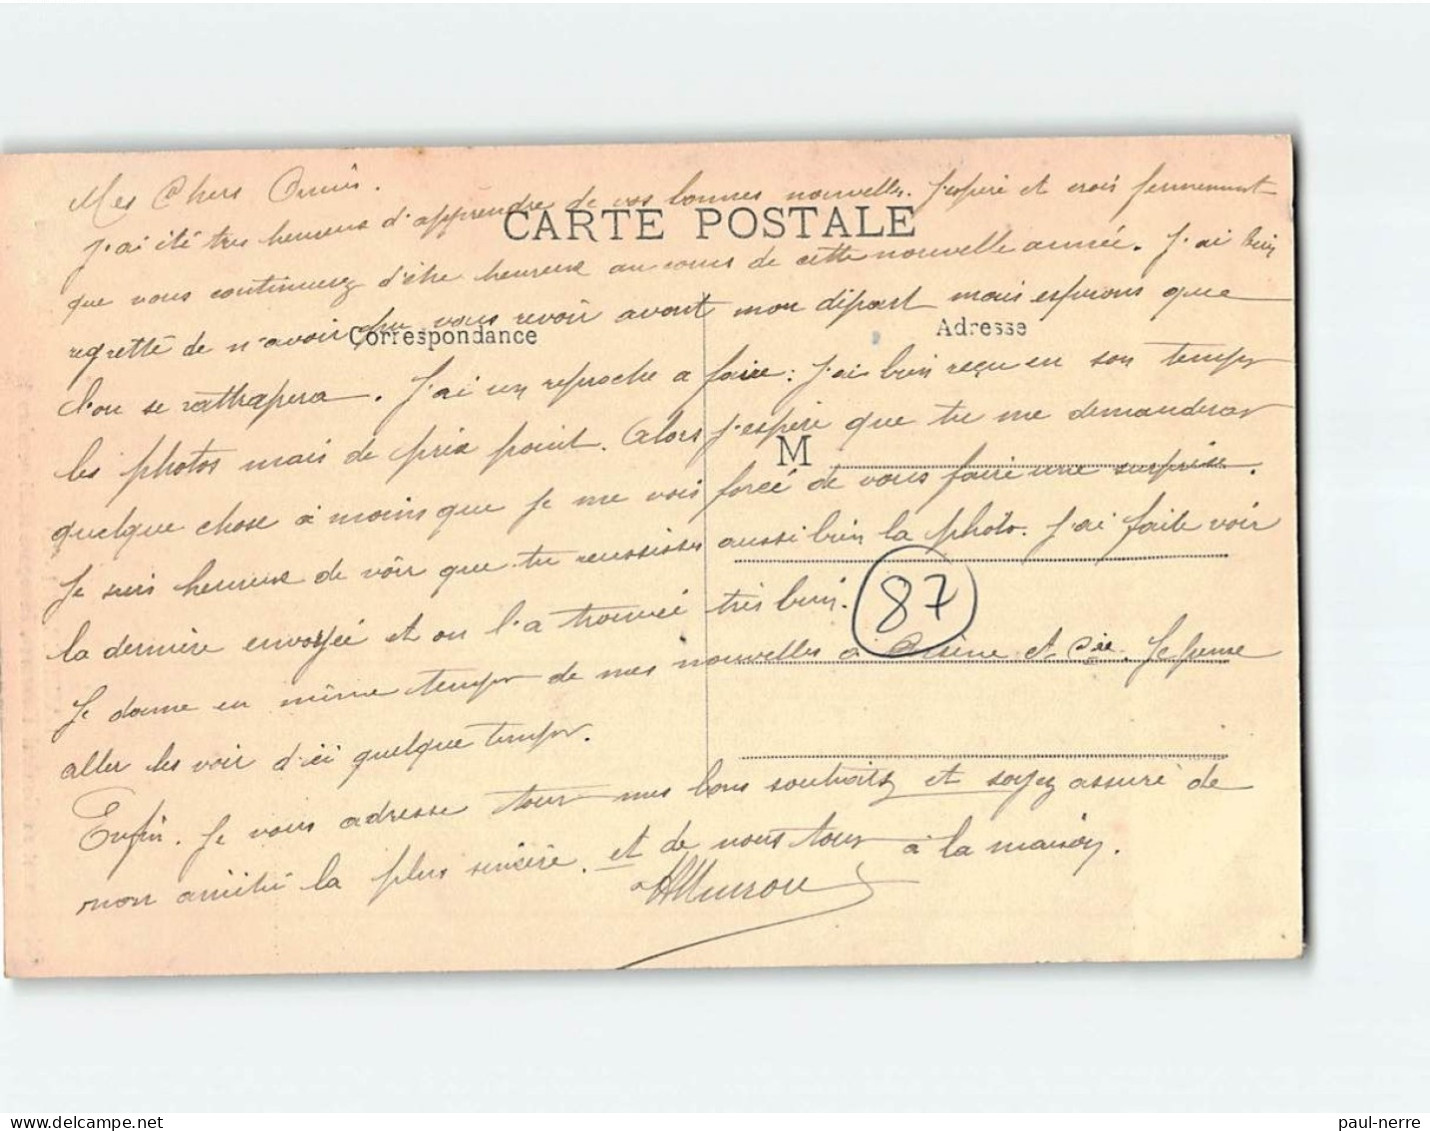 Mes Chers Amis.
J'ai été très heureux d'apprendre de vos bonnes nouvelles. J'espère et crois fermement
CARTE POSTALE
que vous continuez d'être heureux au cours de cette nouvelle année. J'ai bien
regretté de n'avoir pu vous revoir avant mon départ mais espérons que
Correspondance
Adresse
l'on se rattrapera. J'ai un reproche a faire: J'ai bien reçu en son temps
les photos mais de prix point. Alors j'espère que tu me demanderas
M
quelque chose à moins que je me vois forcé de vous faire une surprise.
Je suis heureux de voir que tu reussisses aussi bien la photo. J'ai faite voir
la dernière envoyée et on l'a trouvée très bien.
87
Je donne en même temps de mes nouvelles à et Cie. Je pense
aller les voir d'ici quelque temps.
Enfin. Je vous adresse tous mes bons souhaits et soyez assuré de
mon amitié la plus sincère. et de vous tous à la maison.
paul-nerre